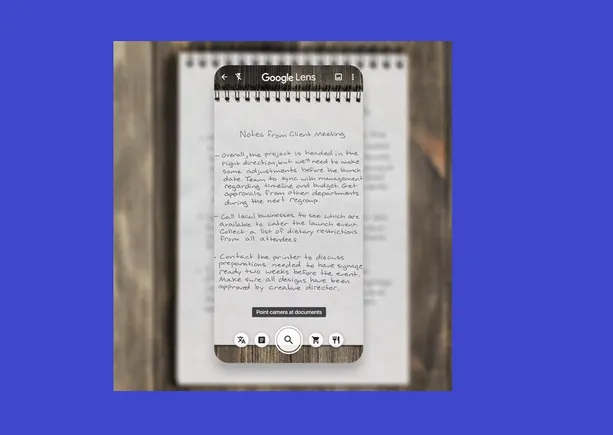 Google Lens
Notes from Client Meeting
- Overall, the project is headed in the
right direction, but we'll need to make
some adjustments before the launch
date. Team to sync with management
regarding timeline and budget. Get
approvals from other departments
during the next regroup.
- Call local businesses to see which are
available to cater the launch event.
Collect a list of dietary restrictions
from all attendees
- Contact the printer to discuss
preparations needed to have signage
ready two weeks before the event.
Make sure all designs have been
approved by creative director.
Point camera at documents